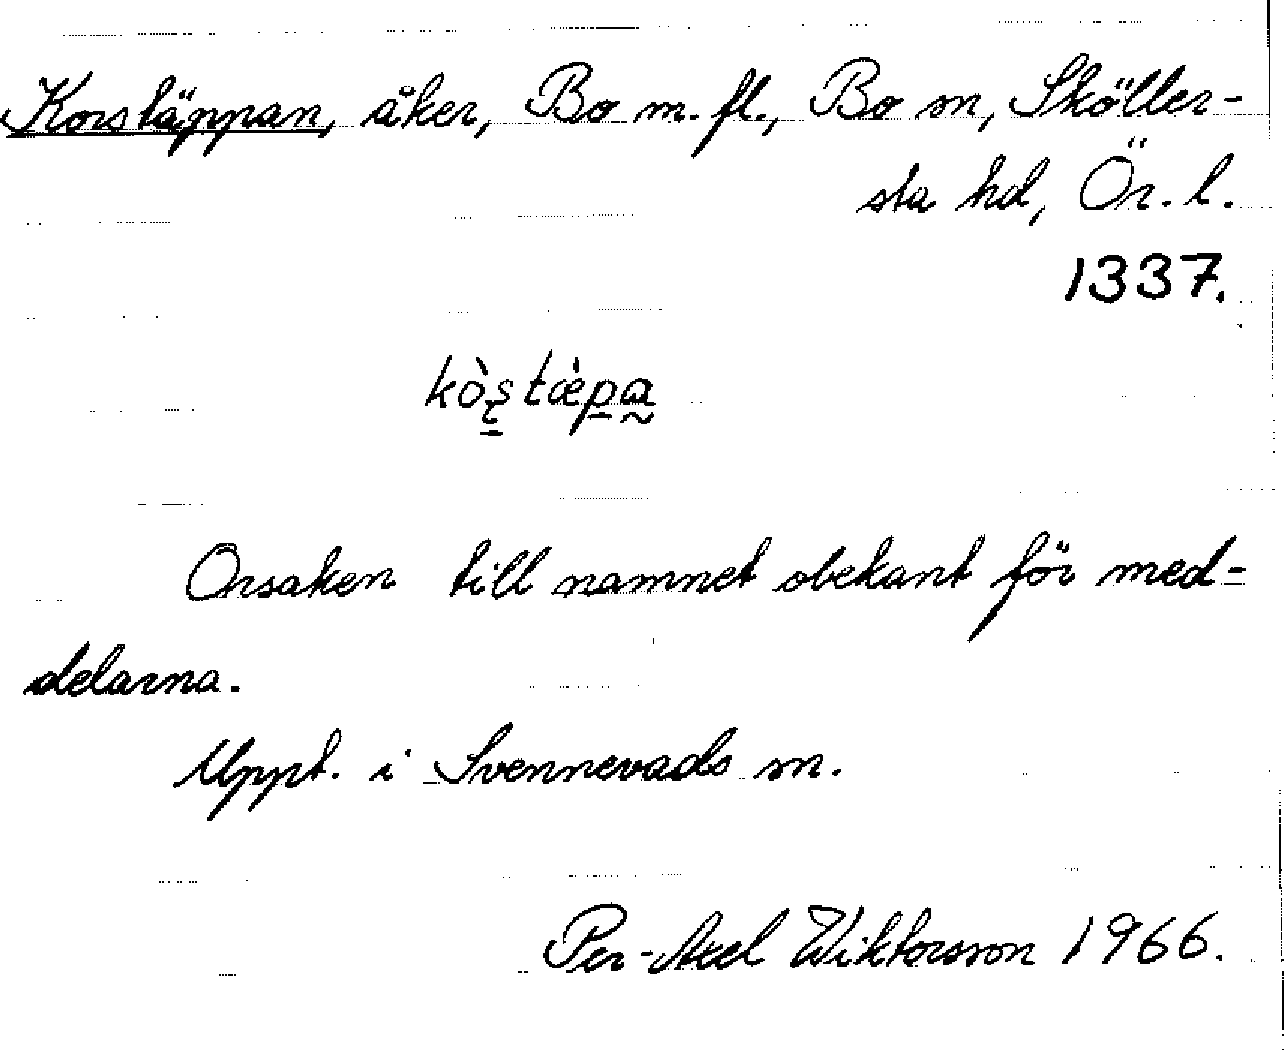 Korstäppan, åker, Bo m. fl., Bo sn, Sköller-
sta hd, Ör. l.
1337.
kòʂtæ̀pa
Orsaken till namnet obekant för med-
delarna.
Uppt. i Svennevads sn.
Per-Axel Wiktorsson 1966.